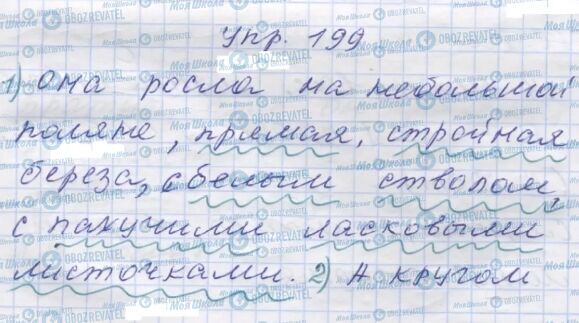 Упр. 199
1) Она росла на небольшой
поляне, прямая, стройная
береза, с белым стволом,
с пахучими ласковыми
листочками. 2) А кругом